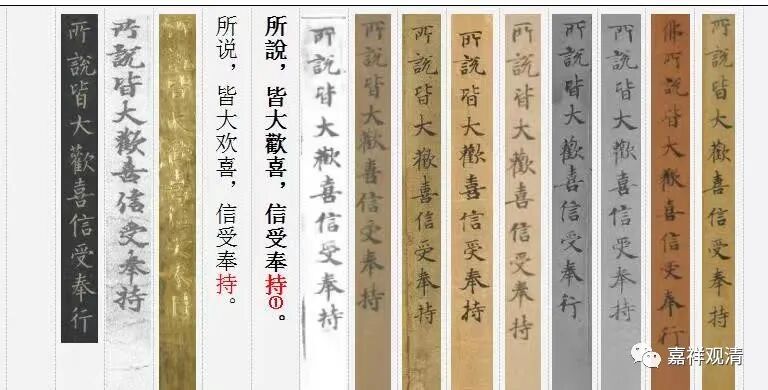 所說皆大歡喜信受奉持
佛所說皆大歡喜信受奉行
所說皆大歡喜信受奉持
所說皆大歡喜信受奉行
所說皆大歡喜信受奉持
所說皆大歡喜信受奉持
所說皆大歡喜信受奉持
所說皆大歡喜信受奉持
所說皆大歡喜信受奉持
所說，皆大歡喜，信受奉持①。
所说，皆大欢喜，信受奉持。
所說皆大歡喜信受奉行
所說皆大歡喜信受奉持
所說皆大歡喜信受奉行
嘉祥观清